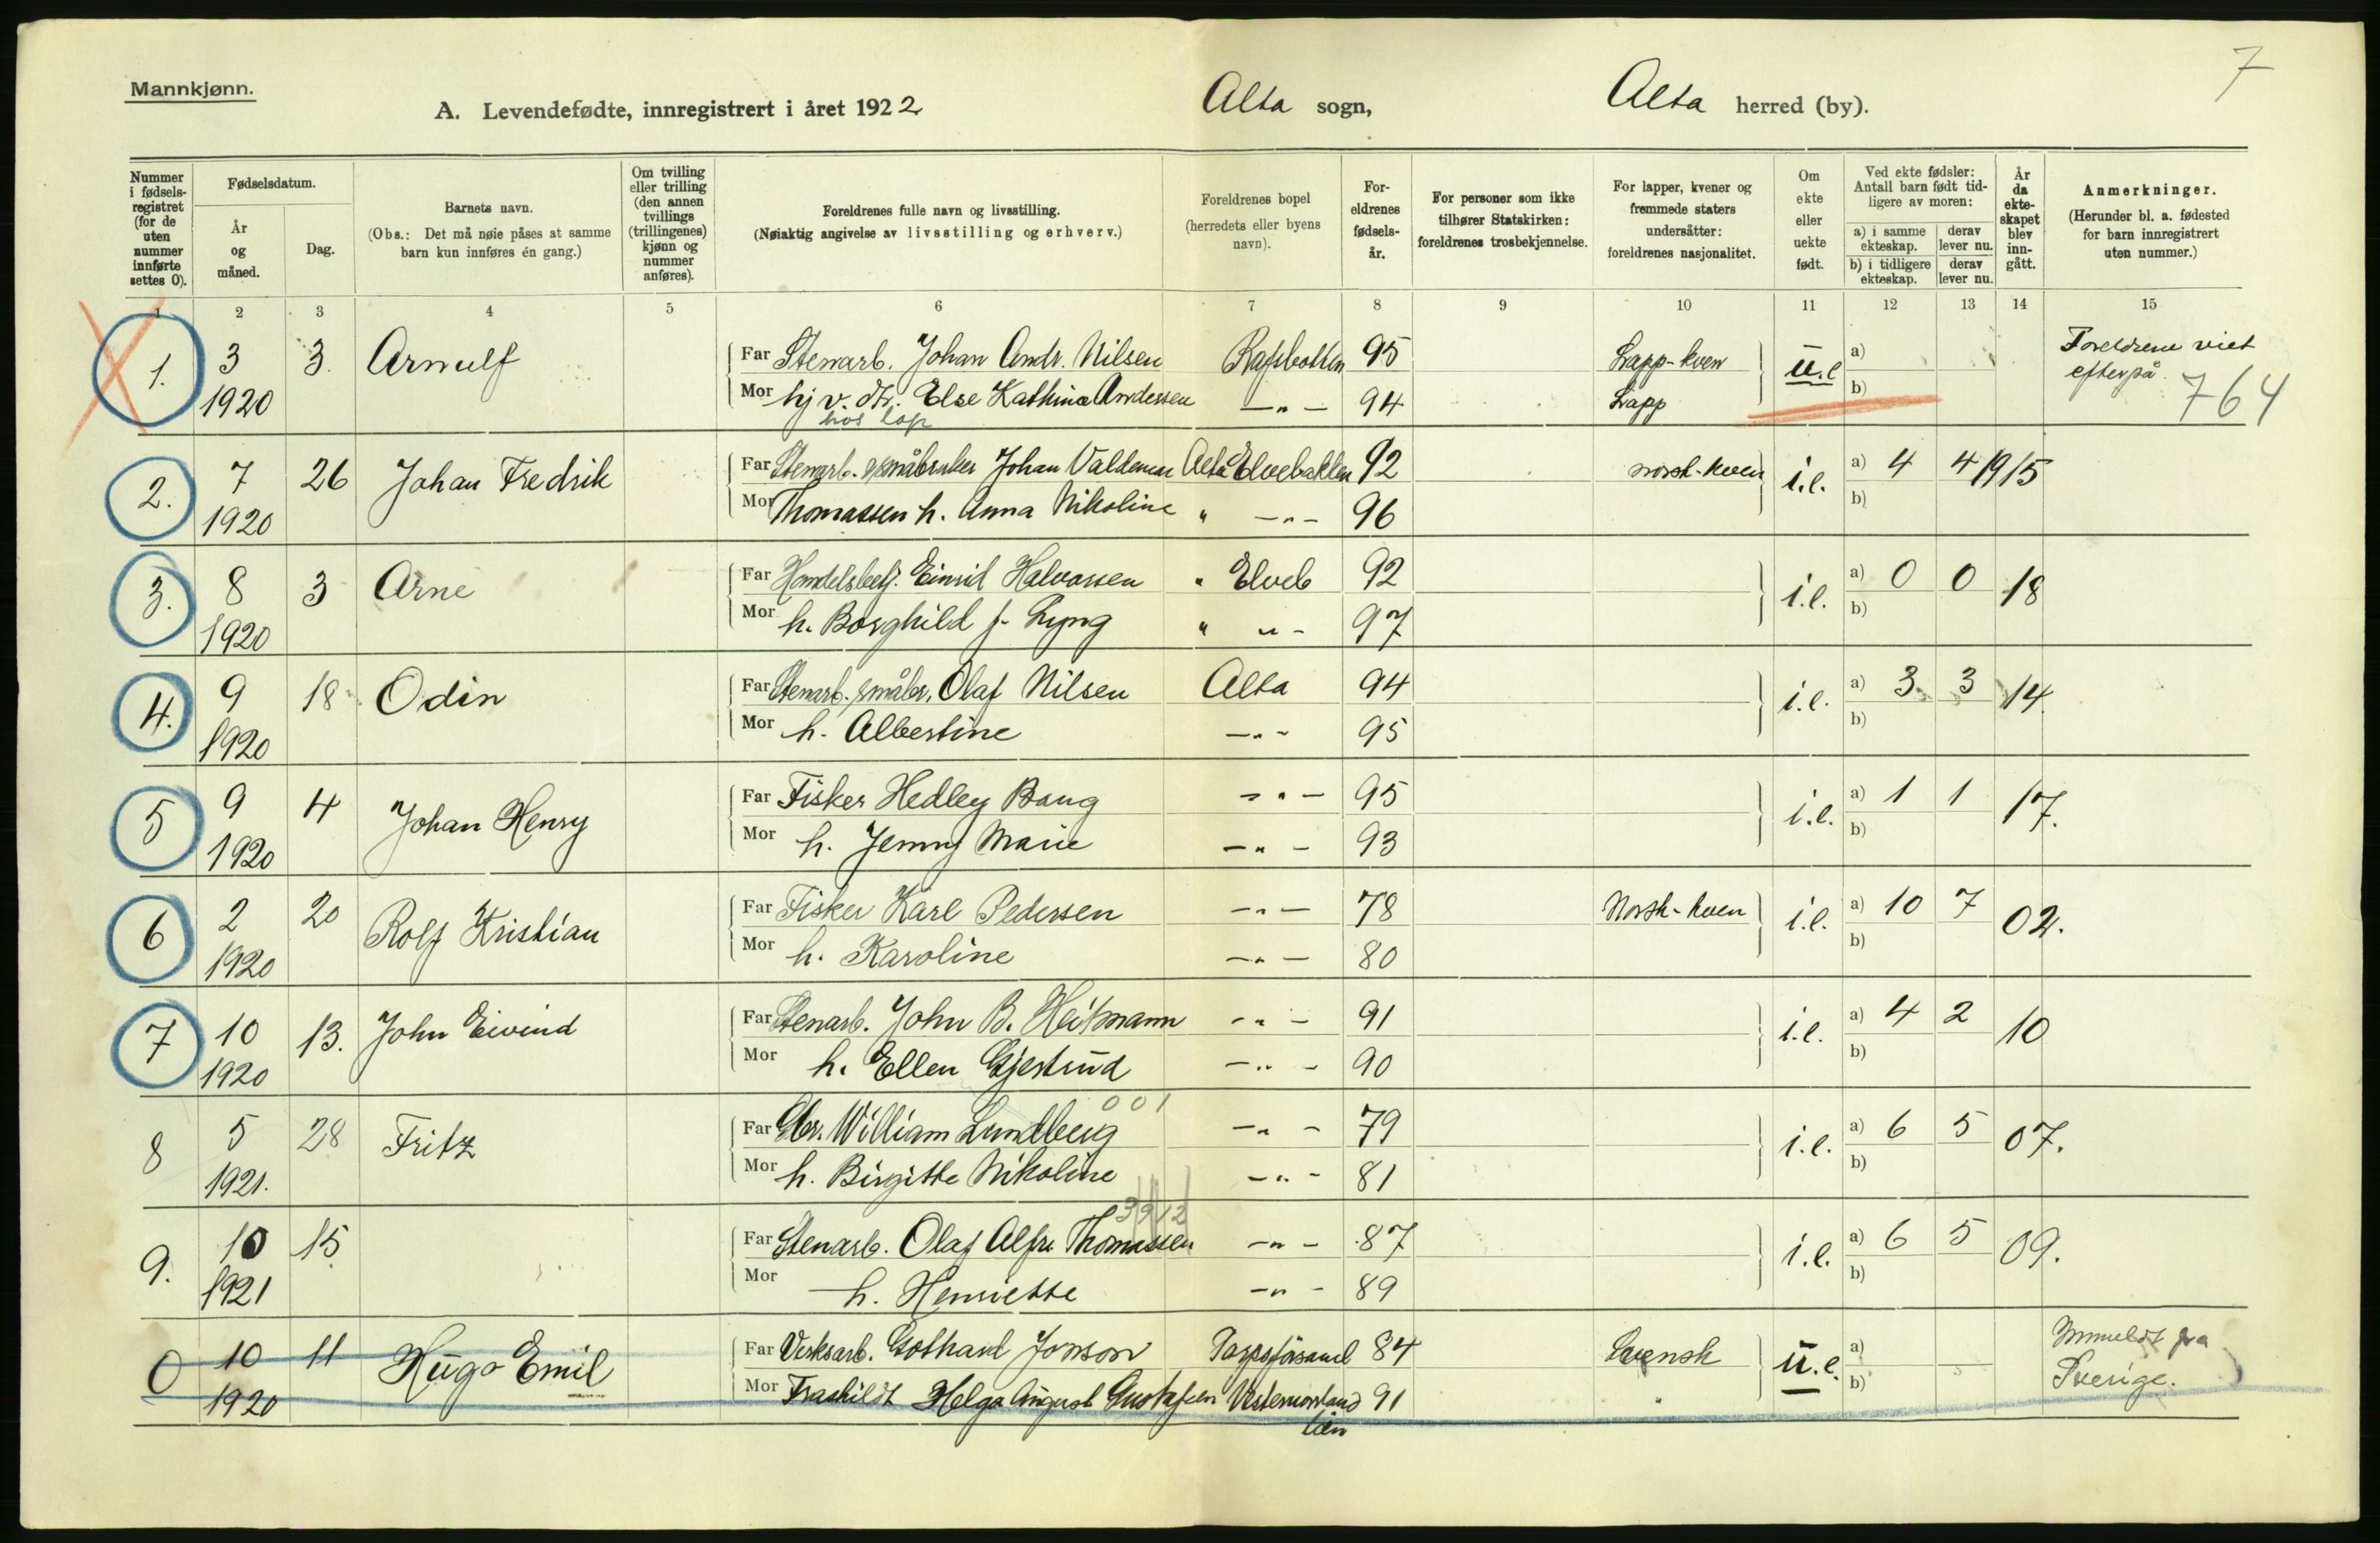 7
Mannkjønn.
A. Levendefødte, innregistrert i året 1922 Alta sogn, Alta herred (by).
Nummer i fødsels-registret (for de uten nummer innførte settes 0).
Fødselsdatum.
År og måned.
Dag.
Barnets navn.
(Obs.: Det må nøie påses at samme barn kun innføres én gang.)
Om tvilling eller trilling (den annen tvillings (trillingenes) kjønn og nummer anføres).
Foreldrenes fulle navn og livsstilling.
(Nøiaktig angivelse av livsstilling og erhverv.)
Foreldrenes bopel (herredets eller byens navn).
For-eldrenes fødsels-år.
For personer som ikke tilhører Statskirken: foreldrenes trosbekjennelse.
For lapper, kvener og fremmede staters undersåtter: foreldrenes nasjonalitet.
Om ekte eller uekte født.
Ved ekte fødsler: Antall barn født tid-ligere av moren:
a) i samme ekteskap. derav lever nu.
b) i tidligere ekteskap. derav lever nu.
År da ekte-skapet blev inn-gått.
Anmerkninger.
(Herunder bl. a. fødested for barn innregistrert uten nummer.)
1 2 3 4 5 6 7 8 9 10 11 12 13 14 15
1. 3 3. Arnulf Far Stenarb. Johan Andr. Nilsen Rafsbotten 95 Lapp-kven u.e a) Foreldrene viet
1920 Mor hj v. dtr. Else Kathina Andersen —"— 94 Lapp b) efterpå. 764
hos
2. 7 26 Johan Fredrik Far Stenarb. småbruker Johan Valdemar Alta Elvebakken 92 norsk-kven i.e. a) 4 4 1915
1920 Mor Thomassen h. Anna Nikoline " —"— 96 b)
3. 8 3 Arne Far Handelsbetj. Einrid Halvorsen " Elveb 92 i.e. a) 0 0 18
1920 Mor h. Borghild f. Lyng " "- 97 b)
4. 9 18 Odin Far Stenarb. småbr. Olaf Nilsen Alta 94 i.e. a) 3 3 14
1920 Mor h. Albertine —"- 95 b)
5 9 4 Johan Henry Far Fisker Hedley Bang —"— 95 i.e. a) 1 1 17.
1920 Mor h. Jenny Marie —"— 93 b)
6 2 20 Rolf Kristian Far Fisker Karl Pedersen —"— 78 Norsk-kven i.e. a) 10 7 02.
1920 Mor h. Karoline —"— 80 b)
7 10 13. John Eivind Far Stenarb. John B. Heitmann —"— 91 i.e. a) 4 2 10
1920 Mor h. Ellen Gjestrud —"— 90 b)
001
8 5 28 Fritz Far Gbr. William Lundberg —"— 79 i.e. a) 6 5 07.
1921. Mor h. Birgitte Nikoline —"— 81 b)
3912
9. 10 15 Far Stenarb. Olaf Alfr. Thomassen —"— 87 i.e. a) 6 5 09.
1921 Mor h. Henriette —"— 89 b)
0 10 11 Hugo Emil Far Verksarb. Gothard Jonson 84 Svensk u.e. a) Innmeldt fra
1920 Mor Helga August Gustafsen Vesternorrland 91 b) Sverige.
län